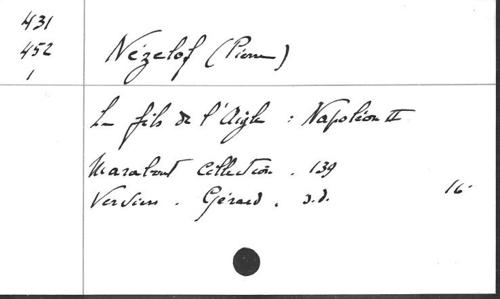 431
452
1
Nézelof (Pierre)
Le fils de l'Aigle : Napoléon II
Marabout Collection . 139
Verviers . Gérard . s.d.
16°